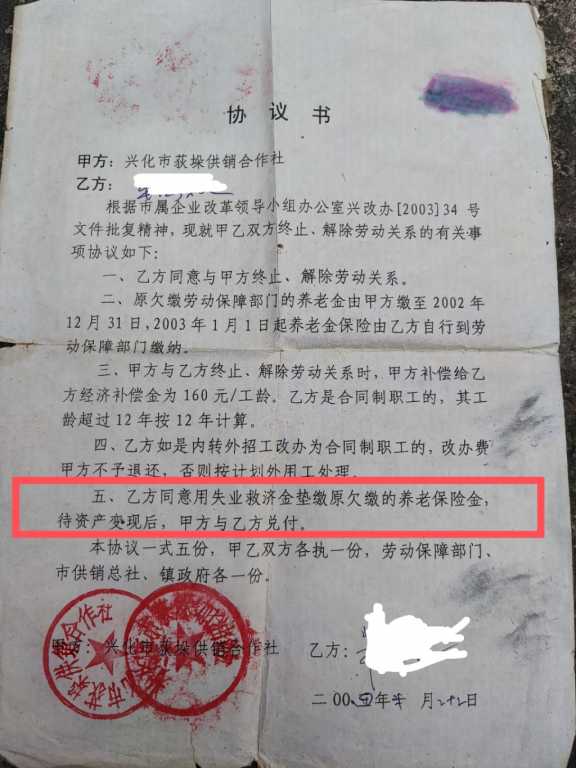 协议书
甲方：兴化市荻垛供销合作社
乙方：
根据市属企业改革领导小组办公室兴改办[2003]34 号
文件批复精神，现就甲乙双方终止、解除劳动关系的有关事
项协议如下：
一、乙方同意与甲方终止、解除劳动关系。
二、原欠缴劳动保障部门的养老金由甲方缴至 2002 年
12 月 31 日，2003 年 1 月 1 日起养老金保险由乙方自行到劳
动保障部门缴纳。
三、甲方与乙方终止、解除劳动关系时，甲方补偿给乙
方经济补偿金为 160 元/工龄。乙方是合同制职工的，其工
龄超过 12 年按 12 年计算。
四、乙方如是内转外招工改办为合同制职工的，改办费
甲方不予退还，否则按计划外用工处理。
五、乙方同意用失业救济金垫缴原欠缴的养老保险金，
待资产变现后，甲方与乙方兑付。
本协议一式五份，甲乙双方各执一份，劳动保障部门、
市供销总社、镇政府各一份。
甲方：兴化市荻垛供销合作社
乙方：
二00 年 月 日